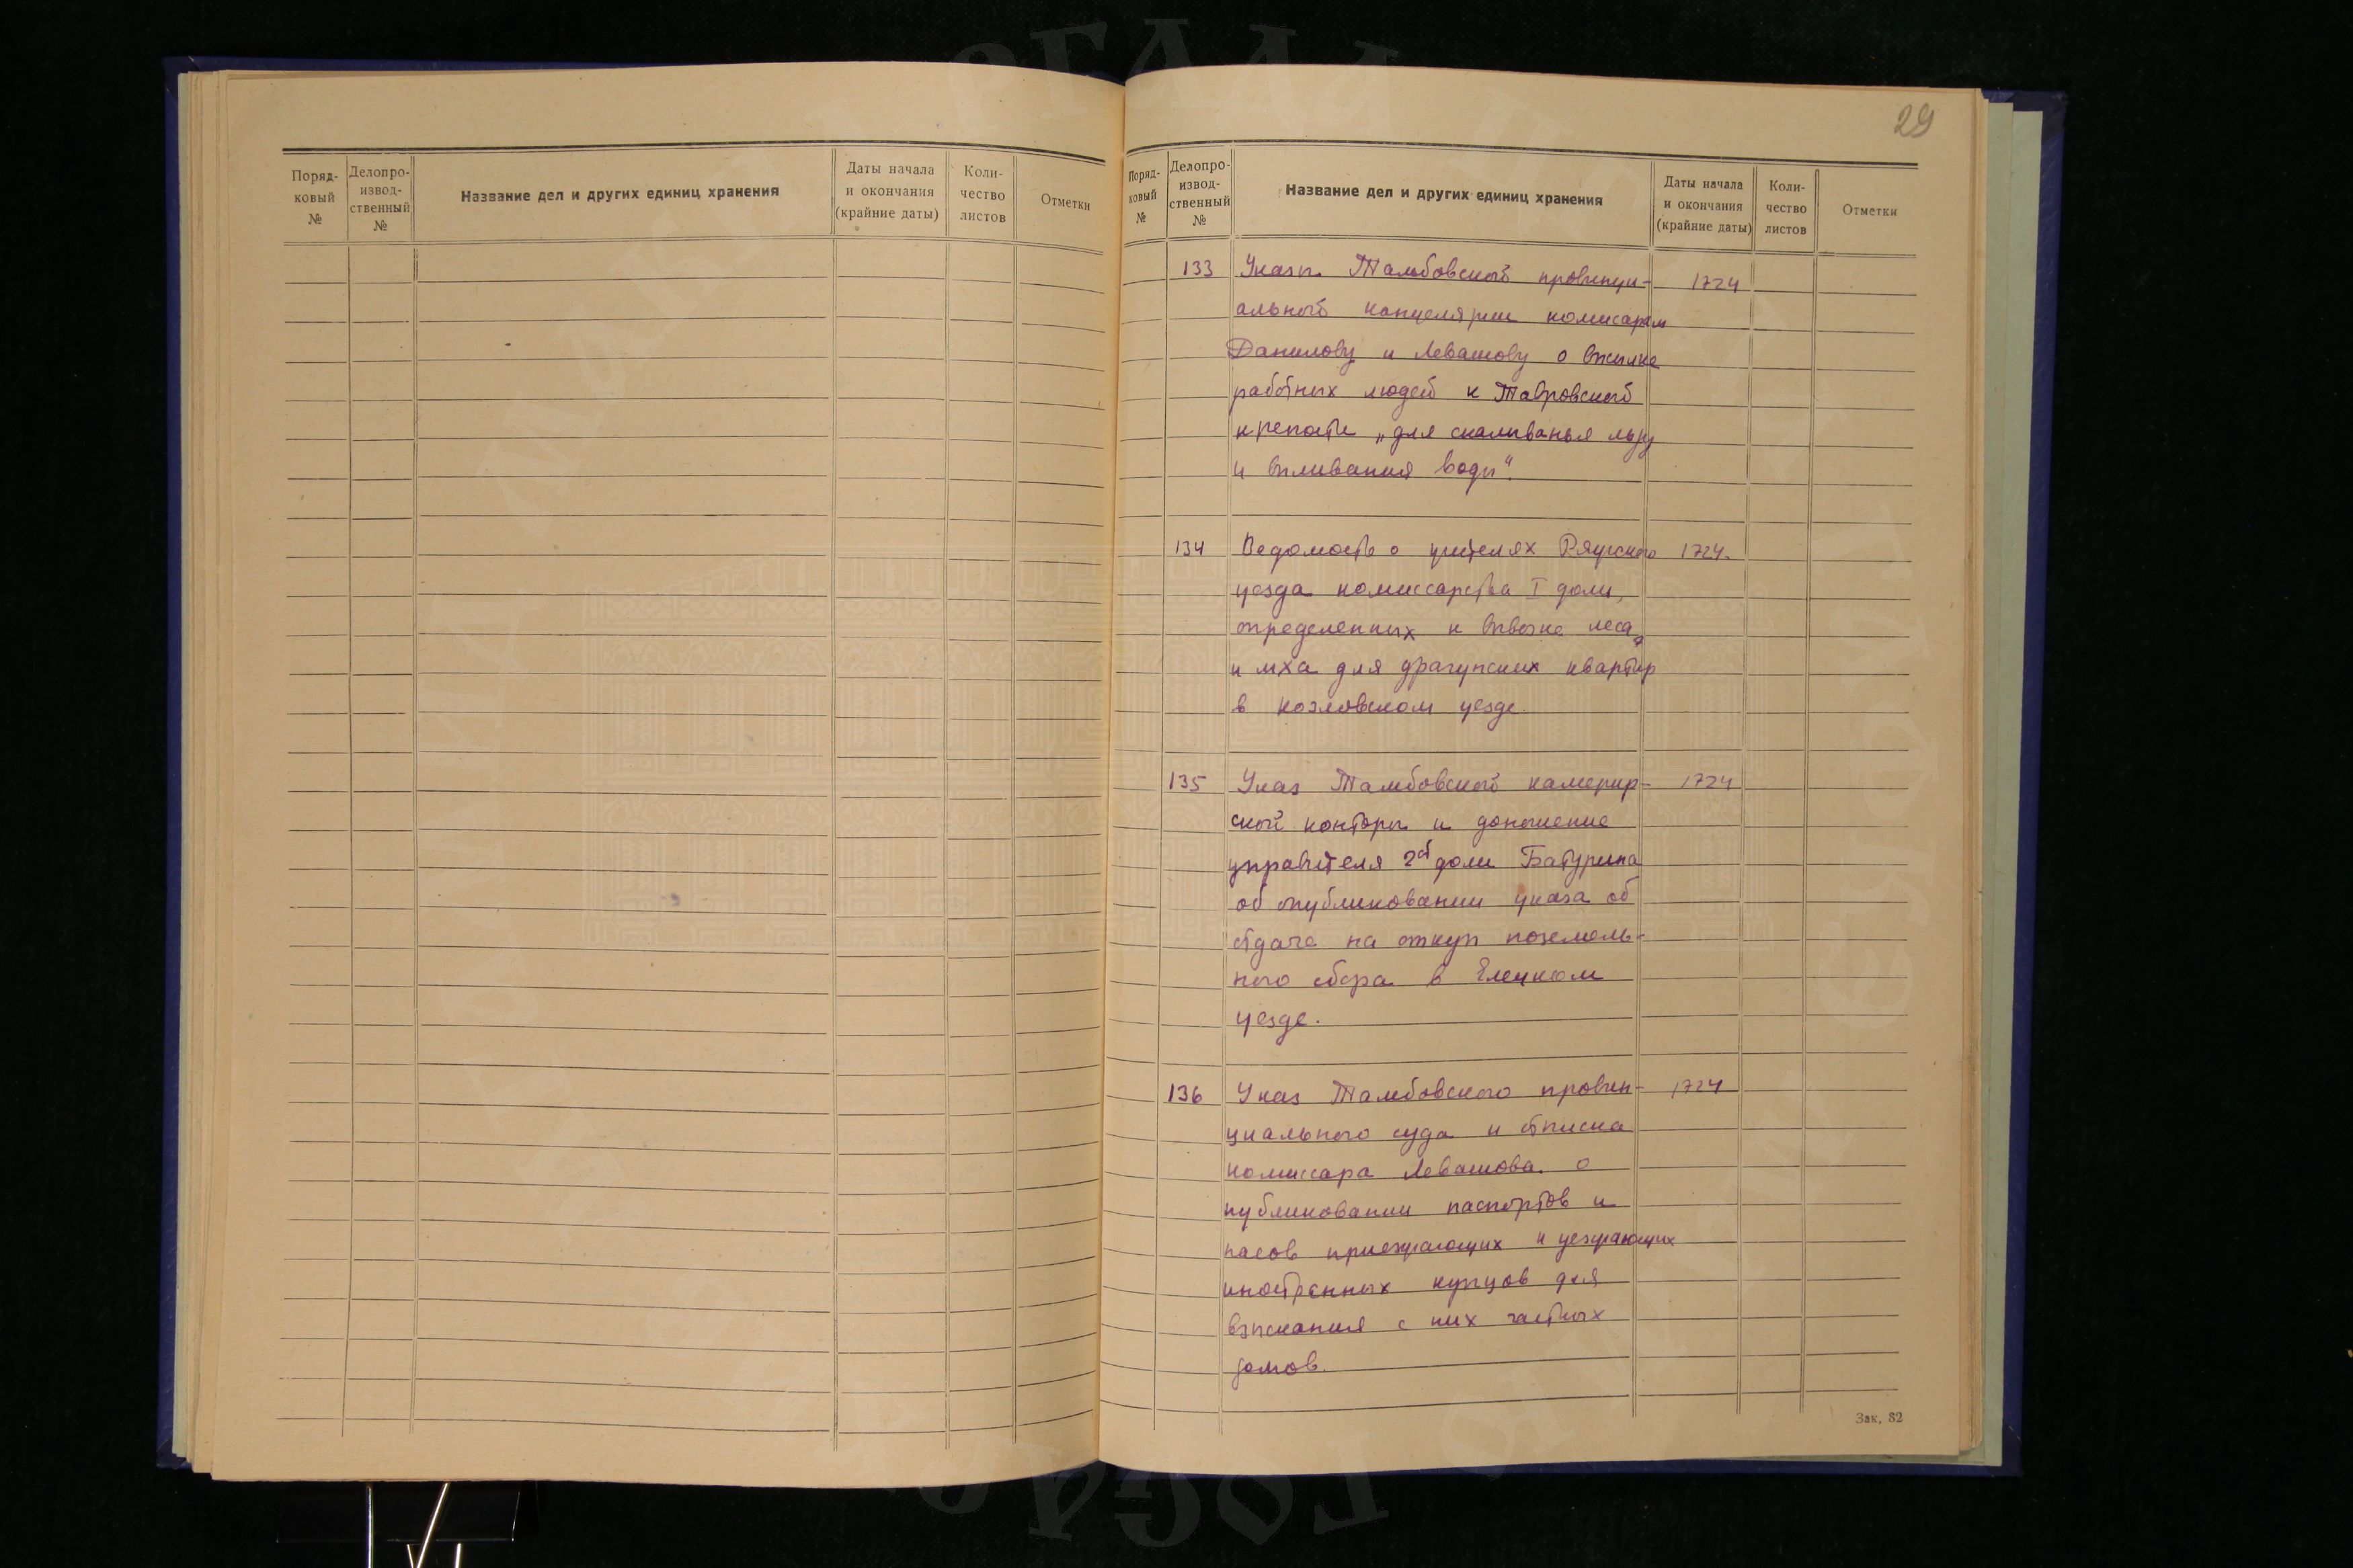 Поряд-
ковый
№
Делопро-
извод-
ственный
№
Название дел и других единиц хранения
Даты начала
и окончания
(крайние даты)
Коли-
чество
листов
Отметки
29
Поряд-
ковый
№
Делопро-
извод-
ственный
№
Название дел и других единиц хранения
Даты начала
и окончания
(крайние даты)
Коли-
чество
листов
Отметки
133 Указы Тамбовской провинци- 1724
альной канцелярии комисарам
Данилову и Левашову о высылке
работных людей к Тавровской
крепости „для скалыванья льду
и выливания воды“.
134 Ведомость о жителях Ряжского 1724.
уезда комиссарства I доли,
определенных к вывозке леса
и мха для драгунских квартир
в козловском уезде.
135 Указ Тамбовской камерир- 1724
ской конторы и доношение
управителя 2ой доли Батурина
об опубликовании указа об
отдаче на откуп поземель-
ного сбора в Елецком
уезде.
136 Указ Тамбовского провин- 1724
циального суда и отписка
комиссара Левашова о
публиковании паспортов и
пасов приезжающих и уезжающих
иностранных купцов для
взыскания с них частных
домов.
Зак. 82